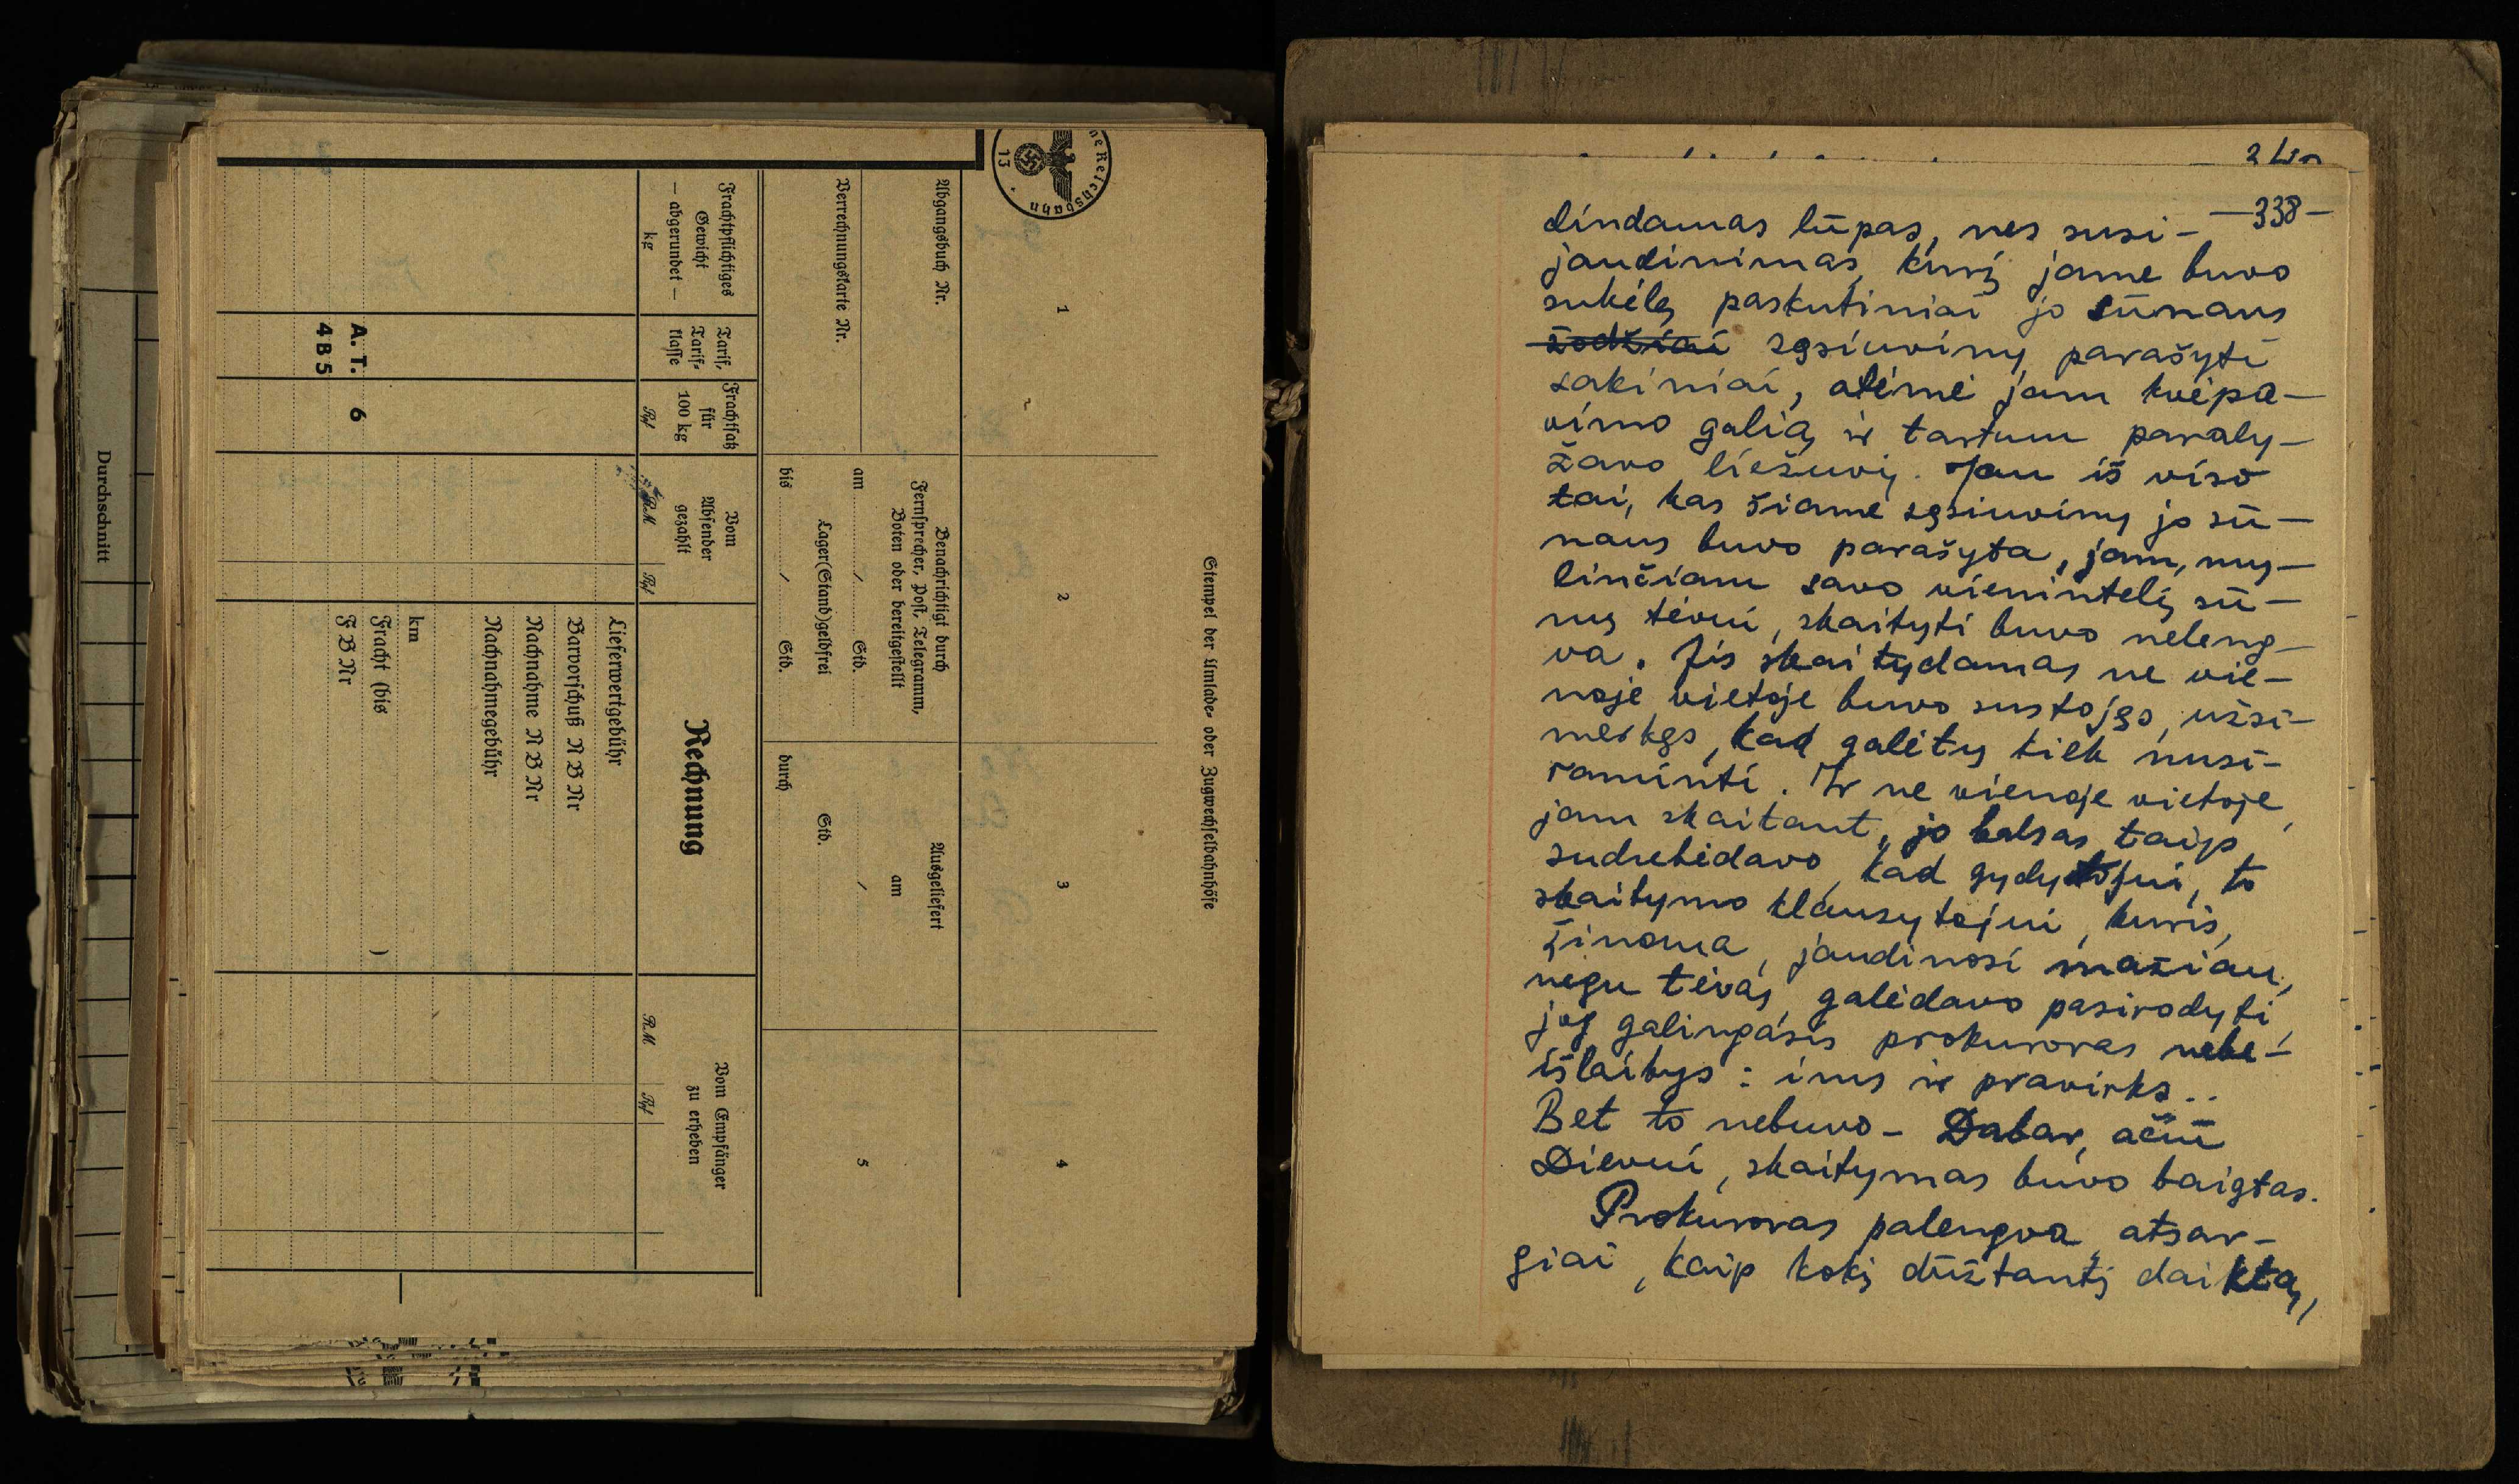 Durchschnitt
ne Reichsbahn
13
Stempel der Umlade- oder Zugwechselbahnhöfe
1
2
3
4
Abgangsbuch Nr.
Verrechnungskarte Nr.
Benachrichtigt durch
Fernsprecher, Post, Telegramm,
Boten oder bereitgestellt
am / Std.
Lager(Stand)geldfrei
bis / Std.
Ausgeliefert
am
/
Std.
durch
5
Frachtpflichtiges
Gewicht
— abgerundet —
kg
Tarif,
Tarif-
klasse
Frachtsatz
für
100 kg
Rpf
Vom
Absender
gezahlt
RM
Rpf
Rechnung
Vom Empfänger
zu erheben
RM
Rpf
Lieferwertgebühr
Barvorschuß N B Nr
Nachnahme N B Nr
Nachnahmegebühr
km
Fracht (bis )
F B Nr
A. T. 6
4 B 5
—338—
dindamas lūpas, nes susi-
jaudinimas, kurį jame buvo
sukėlę paskutiniai jo sūnaus
žodžiai sąsiuviny parašyti
sakiniai, atėmė jam kvėpa-
vimo galią ir tartum paraly-
žavo liežuvį. Jau iš viso
tai, kas šiame sąsiuviny jo sū-
naus buvo parašyta, jam, my-
linčiam savo vienintelį sū-
nų tėvui, skaityti buvo neleng-
va. Jis skaitydamas ne vie-
noje vietoje buvo sustojęs, užsi-
merkęs, kad galėtų kiek nusi-
raminti. Ir ne vienoje vietoje,
jam skaitant, jo balsas taip
sudrebėdavo, kad gydytojui, to
skaitymo klausytojui, kuris,
žinoma, jaudinosi mažiau,
negu tėvas, galėdavo pasirodyti,
jog galingasis prokuroras nebe-
išlaikys: ims ir pravirks..
Bet to nebuvo - Dabar, ačiū
Dievui, skaitymas buvo baigtas.
Prokuroras palengva, atsar-
giai, kaip kokį dūžtantį daiktą,